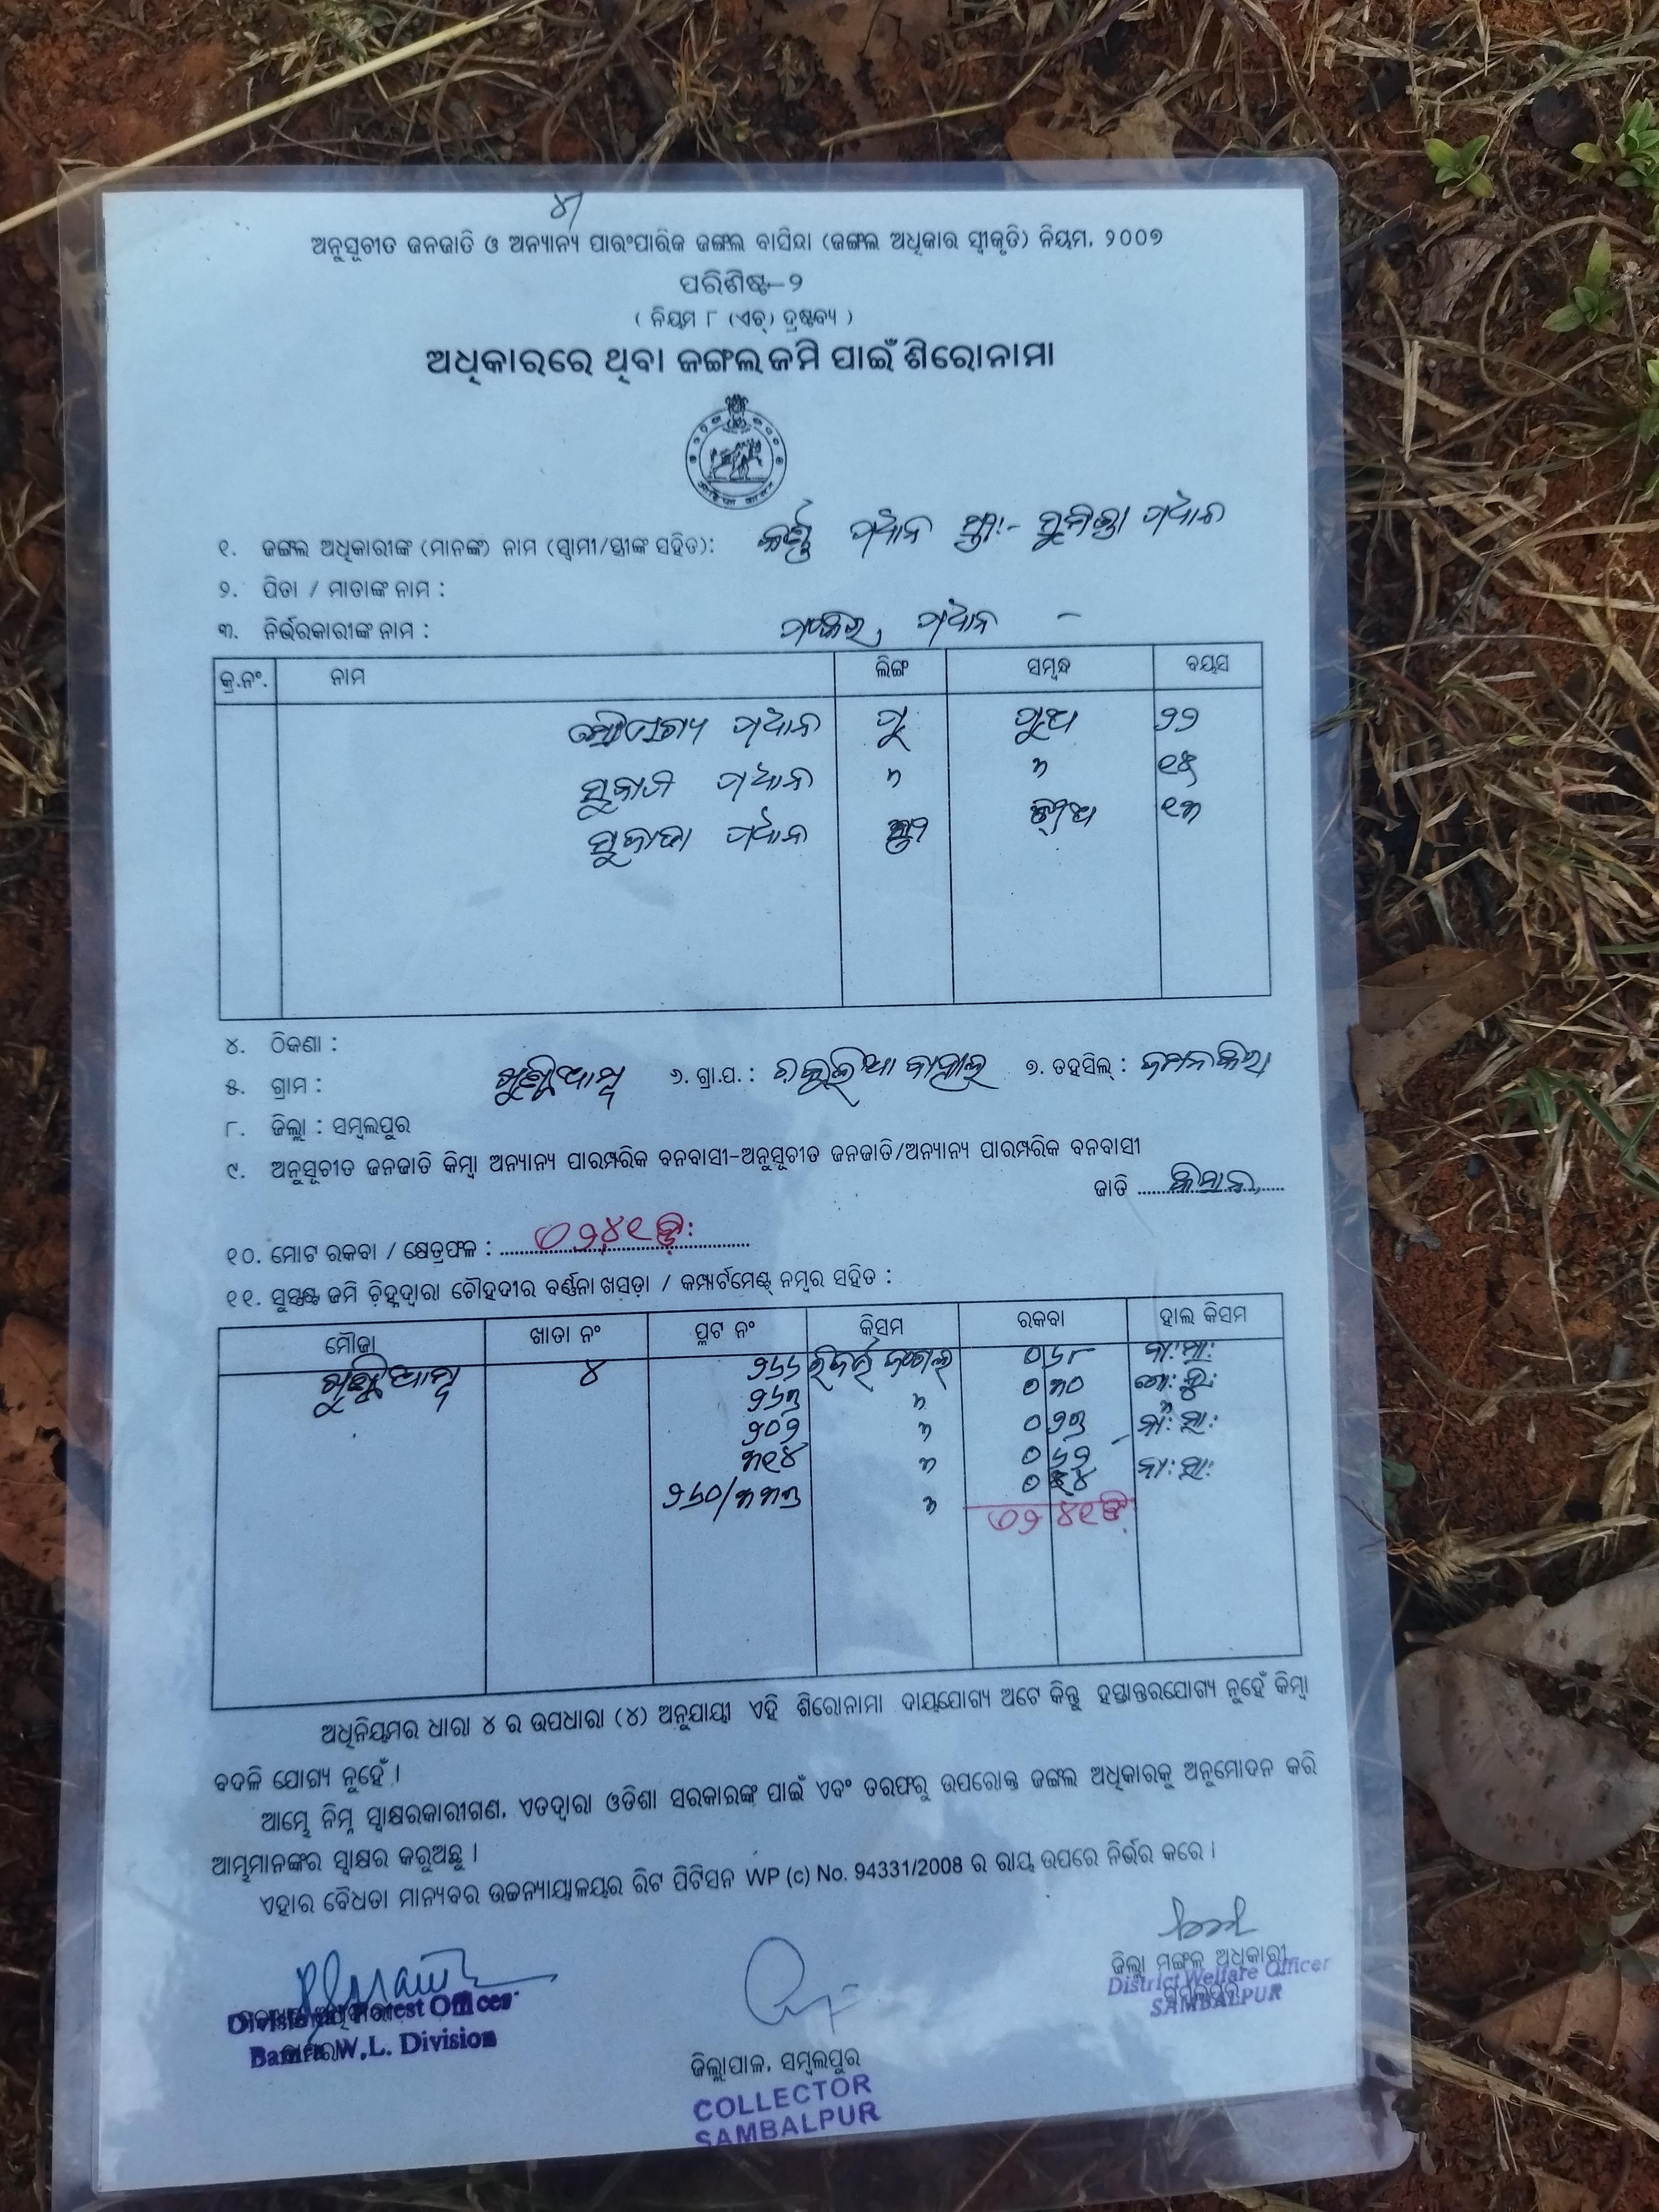 ୪/
ଅନୁସୂଚୀତ ଜନଜାତି ଓ ଅନ୍ୟାନ୍ୟ ପାରଂପାରିକ ଜଙ୍ଗଲ ବାସିନ୍ଦା (ଜଙ୍ଗଲ ଅଧିକାର ସ୍ୱୀକୃତି) ନିୟମ, ୨୦୦୭
ପରିଶିଷ୍ଟ–୨
( ନିୟମ ୮ (ଏଚ୍) ଦ୍ରଷ୍ଟବ୍ୟ )
ଅଧିକାରରେ ଥିବା ଜଙ୍ଗଲ ଜମି ପାଇଁ ଶିରୋନାମା
୧. ଜଙ୍ଗଲ ଅଧିକାରୀଙ୍କ (ମାନଙ୍କ) ନାମ (ସ୍ୱାମୀ/ସ୍ତ୍ରୀଙ୍କ ସହିତ): ପ୍ରଧାନ ସ୍ତ୍ରୀ:- ସୁମିତ୍ରା ପ୍ରଧାନ
୨. ପିତା / ମାତାଙ୍କ ନାମ :
୩. ନିର୍ଭରକାରୀଙ୍କ ନାମ : ପ୍ରଧାନ –
କ୍ର.ନଂ. ନାମ ଲିଙ୍ଗ ସମ୍ବନ୍ଧ ବୟସ
ସୌଭାଗ୍ୟ ପ୍ରଧାନ ପୁ ପୁଅ ୨୨
ପ୍ରଧାନ " " ୧୫
ପ୍ରଧାନ ସ୍ତ୍ରୀ ଝିଅ ୧୩
୪. ଠିକଣା :
୫. ଗ୍ରାମ : ୬. ଗ୍ରା.ପ. : ୭. ତହସିଲ୍ : ଜମନକିରା
୮. ଜିଲ୍ଲା : ସମ୍ବଲପୁର
୯. ଅନୁସୂଚୀତ ଜନଜାତି କିମ୍ବା ଅନ୍ୟାନ୍ୟ ପାରମ୍ପରିକ ବନବାସୀ–ଅନୁସୂଚୀତ ଜନଜାତି/ଅନ୍ୟାନ୍ୟ ପାରମ୍ପରିକ ବନବାସୀ
ଜାତି କିସାନ
୧୦. ମୋଟ ରକବା / କ୍ଷେତ୍ରଫଳ :
୧୧. ସୁସ୍ପଷ୍ଟ ଜମି ଚିହ୍ନଦ୍ୱାରା ଚୌହଦୀର ବର୍ଣ୍ଣନା ଖସଡ଼ା / କମ୍ପାର୍ଟମେଣ୍ଟ୍ ନମ୍ବର ସହିତ :
ମୌଜା ଖାତା ନଂ ପ୍ଲଟ ନଂ କିସମ ରକବା ହାଲ କିସମ
୪ ୨୬୬ ରିଜର୍ଭ ଜଙ୍ଗଲ ୦ ୬୮
୨୬୩ " ୦ ୩୦
୨୦୨ " ୦ ୨୩
୩୧୪ " ୦ ୬୨
୨୬୦/୩୩୩ "
ଅଧିନିୟମର ଧାରା ୪ ର ଉପଧାରା (୪) ଅନୁଯାୟୀ ଏହି ଶିରୋନାମା ଦାୟଯୋଗ୍ୟ ଅଟେ କିନ୍ତୁ ହସ୍ତାନ୍ତରଯୋଗ୍ୟ ନୁହେଁ କିମ୍ବା
ବଦଳି ଯୋଗ୍ୟ ନୁହେଁ ।
ଆମ୍ଭେ ନିମ୍ନ ସ୍ୱାକ୍ଷରକାରୀଗଣ, ଏତଦ୍ୱାରା ଓଡିଶା ସରକାରଙ୍କ ପାଇଁ ଏବଂ ତରଫରୁ ଉପରୋକ୍ତ ଜଙ୍ଗଲ ଅଧିକାରକୁ ଅନୁମୋଦନ କରି
ଆମ୍ଭମାନଙ୍କର ସ୍ୱାକ୍ଷର କରୁଅଛୁ ।
ଏହାର ବୈଧତା ମାନ୍ୟବର ଉଚ୍ଚନ୍ୟାୟାଳୟର ରିଟ ପିଟିସନ WP (c) No. 94331/2008 ର ରାୟ ଉପରେ ନିର୍ଭର କରେ ।
ଜିଲ୍ଲା ମଙ୍ଗଳ ଅଧିକାରୀ
District Welfare Officer
ସମ୍ବଲପୁର
SAMBALPUR
Divisional Forest Officer
Bamra W.L. Division
ଜିଲ୍ଲାପାଳ, ସମ୍ବଲପୁର
COLLECTOR
SAMBALPUR